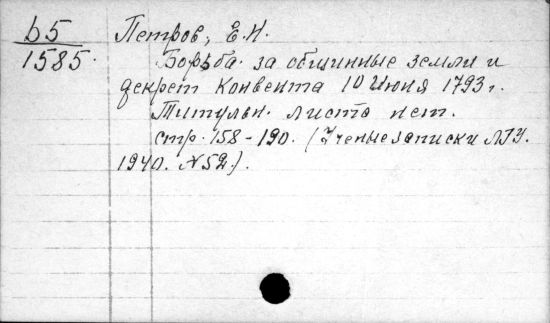 b5
1585.
Петров, Е.Н.
Борьба за общинные земли и
декрет Конвента 10 июня 1793 г.
Титульн. листа нет.
стр. 158-190. (Ученые записки ЛГУ.
1940. N52.).